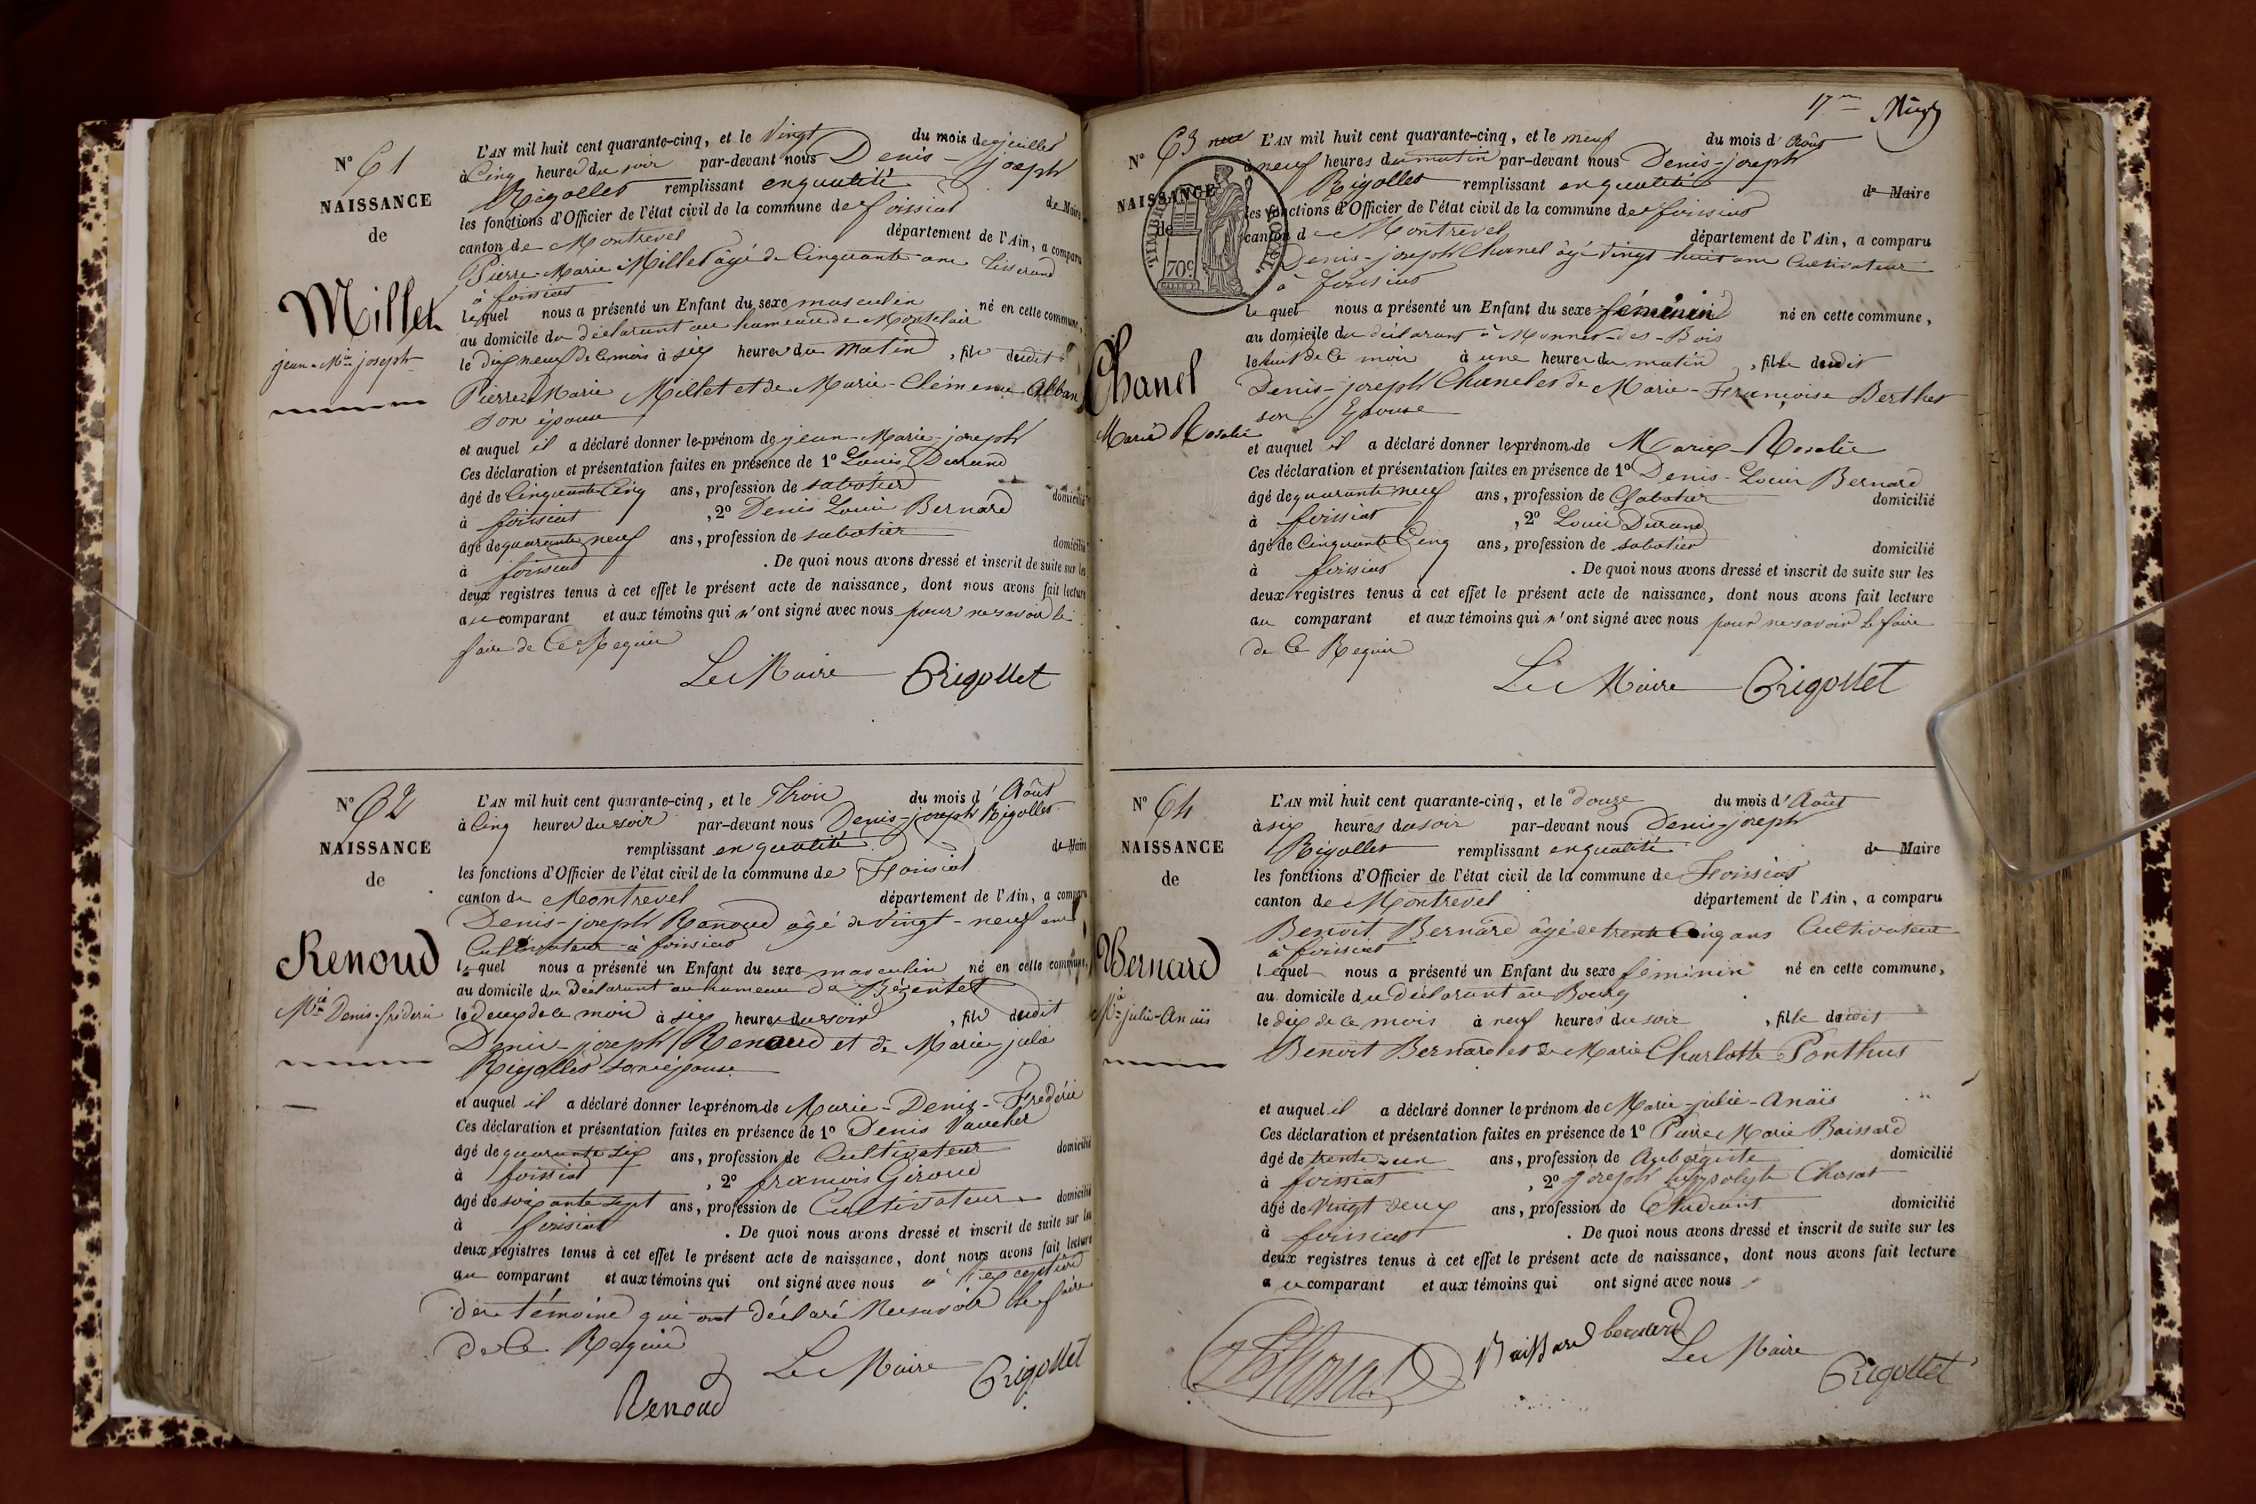 N° 61
NAISSANCE
de
Millet
jean-Mie joseph
L'AN mil huit cent quarante-cinq, et le Vingt du mois de juillet
à Cinq heures du soir par-devant nous Denis-joseph
Rigollet remplissant en qualité de Maire
les fonctions d'Officier de l'état civil de la commune de foissiat
canton de Montrevel département de l'Ain, a comparu
Pierre-Marie Millet âgé de Cinquante ans tisserand
à foissiat
lequel nous a présenté un Enfant du sexe masculin né en cette commune,
au domicile du déclarant au hameau de Montclair
le dix neuf de ce mois à six heures du matin, fils dudit
Pierre Marie Millet et de Marie-Clémence Alban
son épouse
et auquel il a déclaré donner le prénom de jean-Marie-joseph
Ces déclaration et présentation faites en présence de 1° Louis Durand
âgé de Cinquante Cinq ans, profession de sabotier domicilié
à foissiat, 2° Denis Louis Bernard
âgé de quarante neuf ans, profession de sabotier domicilié
à foissiat. De quoi nous avons dressé et inscrit de suite sur les
deux registres tenus à cet effet le présent acte de naissance, dont nous avons fait lecture
au comparant et aux témoins qui n'ont signé avec nous pour ne savoir le
faire de Ce Requis
Le Maire Rigollet
N° 62
NAISSANCE
de
Renoud
Mie Denis-fréderic
L'AN mil huit cent quarante-cinq, et le Trois du mois d'Août
à Cinq heures du soir par-devant nous Denis-joseph Rigollet
remplissant en qualité de Maire
les fonctions d'Officier de l'état civil de la commune de Foissiat
canton de Montrevel département de l'Ain, a comparu
Denis-joseph Renoud âgé de Vingt-neuf ans
Cultivateur à foissiat
lequel nous a présenté un Enfant du sexe masculin né en cette commune,
au domicile du Déclarant au hameau de Bézentet
le deux de ce mois à six heures du soir, fils dudit
Denis-joseph Renoud et de Marie julie
Rigollet son épouse
et auquel il a déclaré donner le prénom de Marie-Denis-Fréderic
Ces déclaration et présentation faites en présence de 1° Denis Vaucher
âgé de quarante six ans, profession de Cultivateur domicilié
à foissiat, 2° françois Giroud
âgé de soixante sept ans, profession de Cultivateur domicilié
à foissiat. De quoi nous avons dressé et inscrit de suite sur les
deux registres tenus à cet effet le présent acte de naissance, dont nous avons fait lecture
au comparant et aux témoins qui ont signé avec nous à l'exception
des témoins qui ont déclaré Ne savoir le faire
de Ce Requis
Le Maire Rigollet
Renoud
17me
N° 63
NAISSANCE
de
TIMBRE ROYAL
70c
Chanel
Marie Rosalie
L'AN mil huit cent quarante-cinq, et le neuf du mois d'Août
à neuf heures du matin par-devant nous Denis-joseph
Rigollet remplissant en qualité de Maire
les fonctions d'Officier de l'état civil de la commune de foissiat
canton de Montrevel département de l'Ain, a comparu
Denis-joseph Chanel âgé Vingt huit ans Cultivateur
à foissiat
lequel nous a présenté un Enfant du sexe féminin né en cette commune,
au domicile du déclarant à Monnet-des-Bois
le huit de Ce mois à une heure du matin, fille dudit
Denis-joseph Chanel et de Marie-Françoise Berthet
son Epouse
et auquel il a déclaré donner le prénom de Marie-Rosalie
Ces déclaration et présentation faites en présence de 1° Denis-Louis Bernard
âgé de quarante neuf ans, profession de Sabotier domicilié
à foissiat, 2° Louis Durand
âgé de Cinquante Cinq ans, profession de sabotier domicilié
à foissiat. De quoi nous avons dressé et inscrit de suite sur les
deux registres tenus à cet effet le présent acte de naissance, dont nous avons fait lecture
au comparant et aux témoins qui n'ont signé avec nous pour ne savoir le faire
de Ce Requis
Le Maire Rigollet
N° 64
NAISSANCE
de
Bernard
Mie julie-Anaïs
L'AN mil huit cent quarante-cinq, et le douze du mois d'Août
à six heures du soir par-devant nous Denis-joseph
Rigollet remplissant en qualité de Maire
les fonctions d'Officier de l'état civil de la commune de Foissiat
canton de Montrevel département de l'Ain, a comparu
Benoit Bernard âgé de trente Cinq ans Cultivateur
à foissiat
lequel nous a présenté un Enfant du sexe féminin né en cette commune,
au domicile du déclarant au Bourg
le dix de ce mois à neuf heures du soir, fille dudit
Benoit Bernard et de Marie Charlotte Ponthus
et auquel il a déclaré donner le prénom de Marie-julie-Anaïs
Ces déclaration et présentation faites en présence de 1° Pierre Marie Boissard
âgé de trente-un ans, profession de Aubergiste domicilié
à foissiat, 2° joseph hyppolyte Chosat
âgé de Vingt deux ans, profession de Etudiant domicilié
à foissiat. De quoi nous avons dressé et inscrit de suite sur les
deux registres tenus à cet effet le présent acte de naissance, dont nous avons fait lecture
au comparant et aux témoins qui ont signé avec nous
Chosat Baissard bernard Le Maire Rigollet